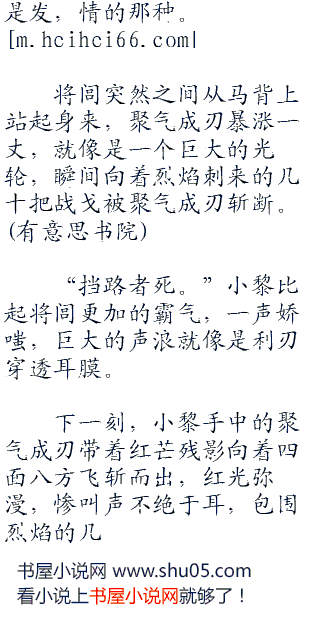 是发，情的那种。
[m.hcihci66.com|
将闾突然之间从马背上
站起身来，聚气成刃暴涨一
丈，就像是一个巨大的光
轮，瞬间向着烈焰刺来的几
十把战戈被聚气成刃斩断。
(有意思书院)
“挡路者死。”小黎比
起将闾更加的霸气，一声娇
嗤，巨大的声浪就像是利刃
穿透耳膜。
下一刻，小黎手中的聚
气成刃带着红芒残影向着四
面八方飞斩而出，红光弥
漫，惨叫声不绝于耳，包围
烈焰的几
书屋小说网 www.shu05.com
看小说上书屋小说网就够了！